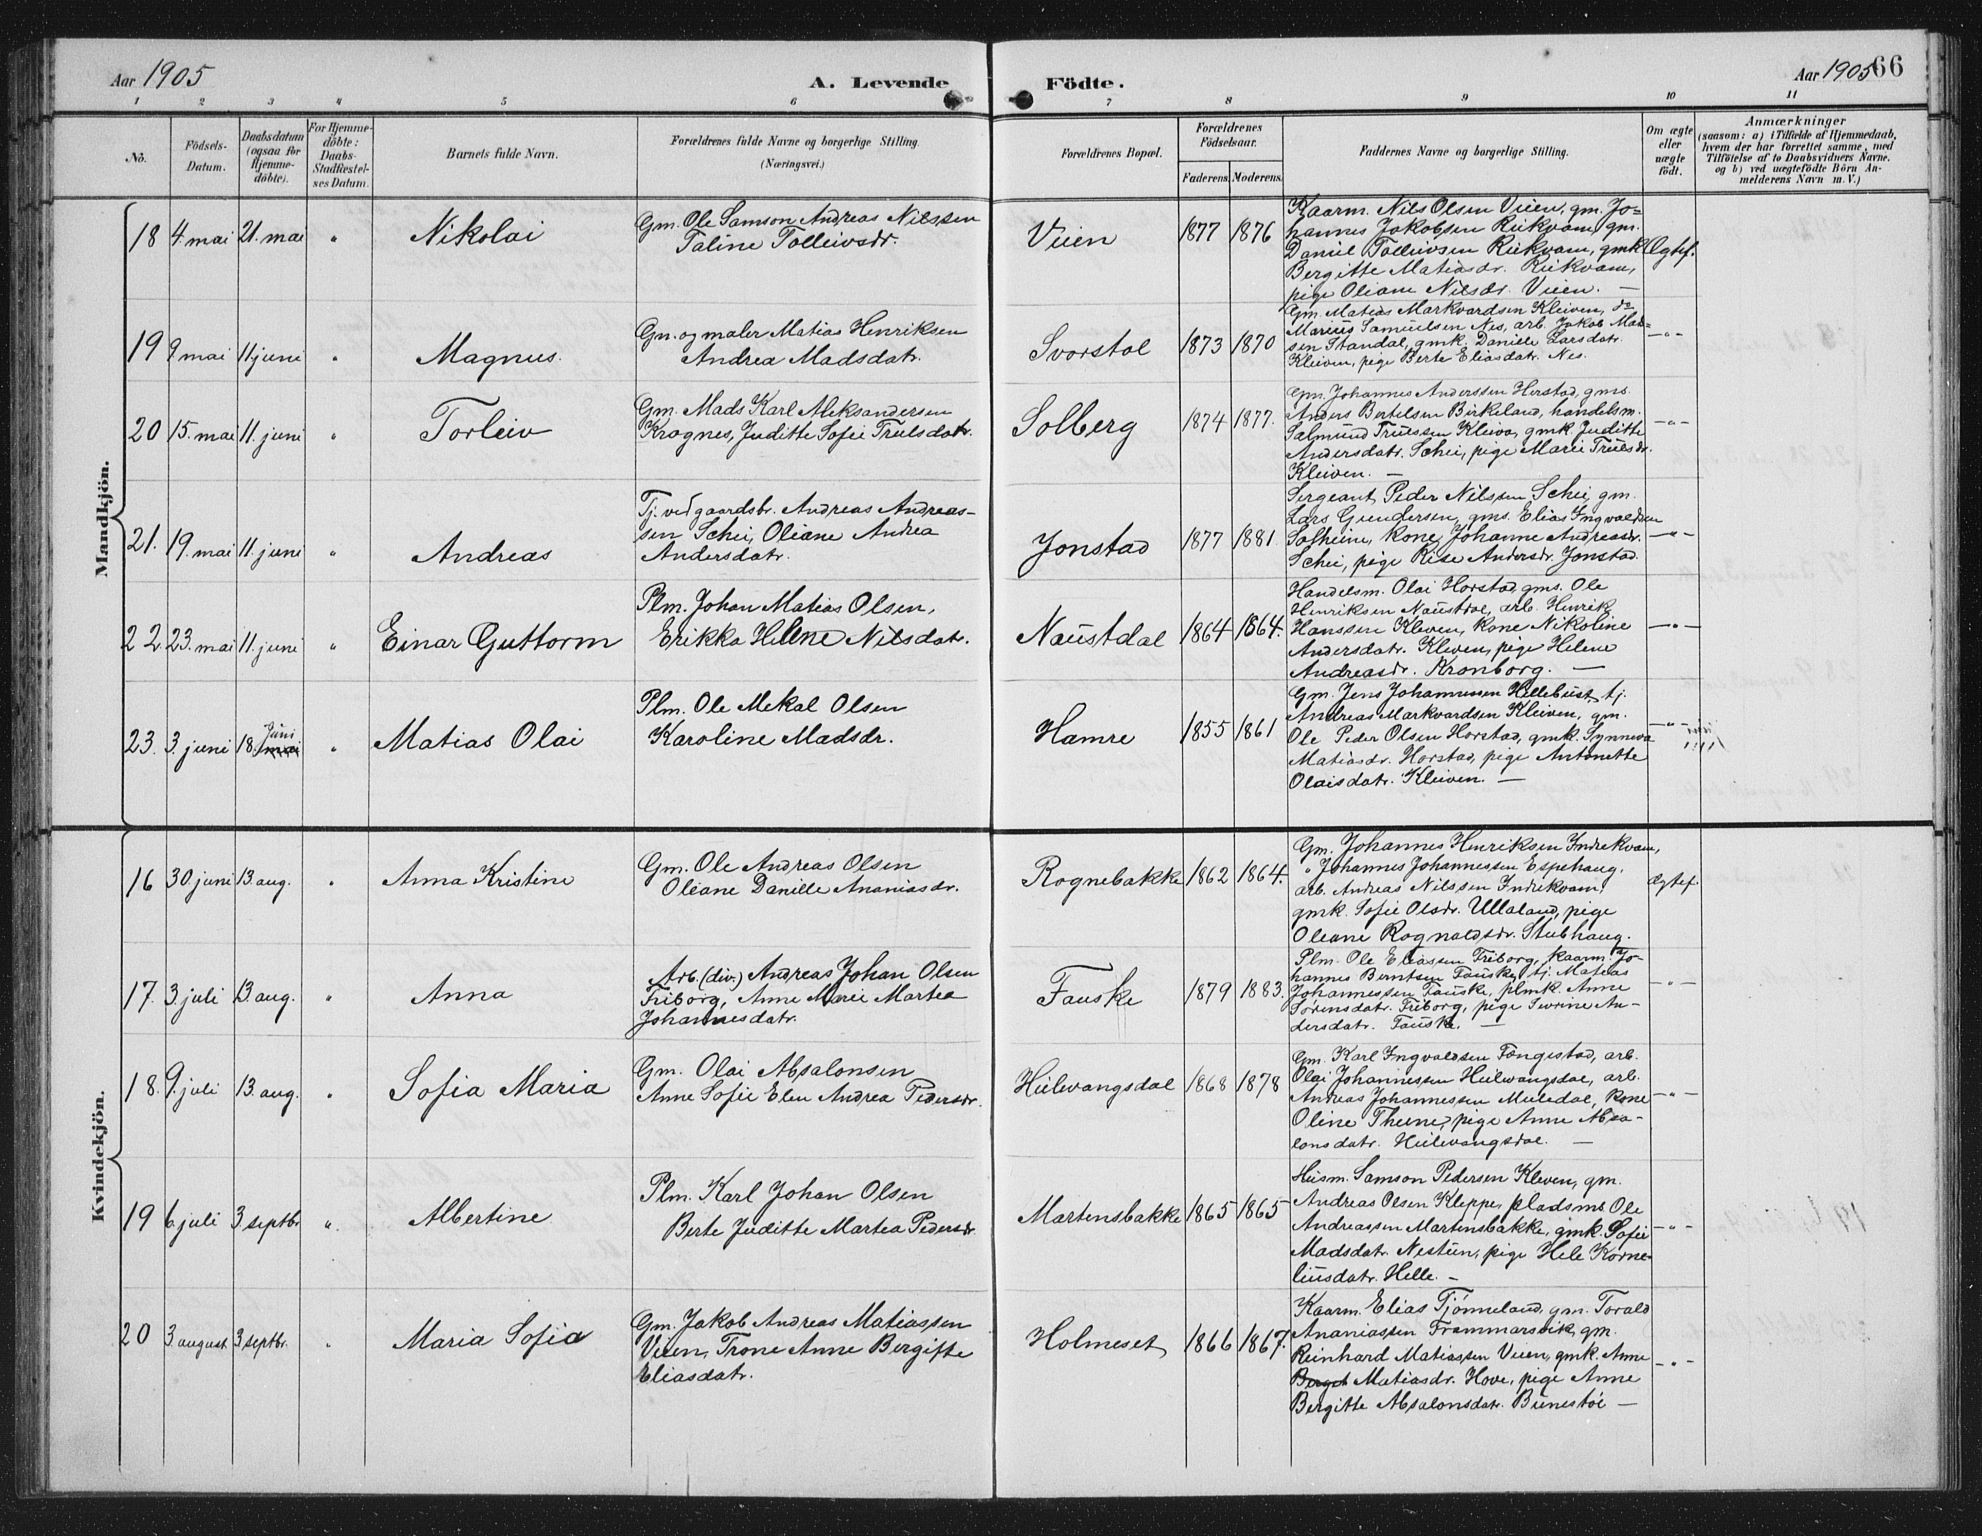 Aar 1905
A. Levende
Födte.
Aar 1905
66
1 2 3 4 5 6 7 8 9 10 11
No.
Födsels-
Datum.
Daabsdatum
(ogsaa for
Hjemme-
döbte).
For Hjemme-
döbte:
Daabs-
Stadfæstel-
ses Datum.
Barnets fulde Navn.
Forældrenes fulde Navne og borgerlige Stilling.
(Næringsvei.)
Forældrenes Bopæl.
Forældrenes
Födselsaar.
Faderens. Moderens.
Faddernes Navne og borgerlige Stilling.
Om ægte
eller
uægte
födt.
Anmærkninger
(saasom: a) i Tilfælde af Hjemmedaab,
hvem der har forrettet samme, med
Tilföielse af to Daabsvidners Navne.
og b) ved uægtefödte Börn An-
melderens Navn m. V.)
Mandkjön.
18 4. mai 21. mai " Nikolai
Gm. Ole Samson Andreas Nilssen
Taline Tolleivsdr.
Vieen 1877 1876
Kaarm. Nils Olsen Vieen, gm. Jo=
hannes Jakobsen Reikvam, gm.
Daniel Tolleivsen Reikvam, gmk.
Bergitte Matiasdr. Reikvam,
pige Oliane Nilsdr. Vieen. —
Ægtef.
19 9 mai 11 juni " Magnus.
Gm. og maler Matias Henriksen
Andrea Madsdatr.
Svorstøl 1873 1870
Gm. Matias Markvardsen Kleiven, do
Marius Samuelsen Nes, arb. Jakob Mad=
sen Standal, gmk. Danille Larsdatr.
Kleiven, pige Berte Eliasdatr. Nes.
—"—
20 15. mai 11. juni " Torleiv
Gm. Mads Karl Aleksandersen
Krognes, Juditte Sofie Trulsdatr.
Solberg 1874 1877.
Gm. Johannes Anderssen Horstad, gms.
Anders Bertelsen Birkeland, handelsm.
Salmund Trulssen Kleiva, gmk. Juditte
Andersdatr. Schei, pige Marie Trulsdr.
Kleiven. —
—"—
21. 19. mai 11. juni " Andreas
Tj. ved gaardsbr. Andreas Andreas-
sen Schei, Oliane Andrea
Andersdatr.
Jonstad 1877 1881.
Sergeant Peder Nilssen Schei, gm.
Lars Gundersen, gms. Elias Ingvaldsen
Solheim, kone Johanne Andreasdr.
Schei, pige Rise Andersdr. Jonstad.
—"—
22. 23. mai 11. juni " Einar Guttorm
Plm. Johan Matias Olsen,
Erikka Helene Nilsdatr.
Naustdal 1864 1864.
Handelsm. Olai Horstad, gms. Ole
Henriksen Naustdal, arb. Henrik
Hanssen Kleven, kone Nikoline
Andersdatr. Kleven, pige Helene
Andreasdr. Kronborg. —
—"—
23. 3. juni 18. mai
Juni
" Matias Olai
Plm. Ole Mekal Olsen
Karoline Madsdr.
Hamre 1855 1861
Gm. Jens Johannessen Hellebust, tj.
Andreas Markvardsen Kleiven, gm.
Ole Peder Olsen Horstad, gmk. Synneva
Matiasdr. Horstad, pige Antonette
Olaisdatr. Kleiven. —
—"—
Kvindekjön.
16 30 juni 13 aug. " Anna Kristine
Gm. Ole Andreas Olsen
Oleane Danille Ananiasdr.
Rognebakke 1862 1864.
Gm. Johannes Henriksen Indrekvam,
" Johannes Johannessen Espehaug.
arb. Andreas Nilssen Indrekvam,
gmk. Sofie Olsdr. Ullaland, pige
Oleane Rognaldsdr. Stubhaug.
Ægtef.
17. 3. juli 13. aug. " Anna
Arb. (div.) Andreas Johan Olsen
Friborg, Anne Marie Martea
Johannesdatr.
Fauske 1879 1883.
Plm. Ole Eliassen Friborg, kaarm. Jo-
hannes Berntsen Fauske, tj. Mateas
Johannessen Fauske, plmk. Anne
Sørensdatr. Friborg, pige Sevrine An-
dersdatr. Fauske. —
—"—
18. 9. juli 13. aug. " Sofia Maria
Gm. Olai Absalonsen
Anne Sofie Elen Andrea Pedersdr.
Heilevangsdal 1868 1878
Gm. Karl Ingvaldsen Fængestad, arb.
Olai Johannessen Heilevangsdal, arb.
Andreas Johannessen Meledal, kone
Oline Theene, pige Anne Absa-
lonsdatr. Heilevangsdal. —
—"—
19 6. juli 3. septbr. " Albertine
Plm. Karl Johan Olsen
Berte Juditte Martea Pedersdr.
Martensbakke 1865 1865
Husm. Samson Pedersen Kleven, gm.
Andreas Olsen Kleppe, pladsms. Ole
Andreassen Martensbakke, gmk. Sofie
Madsdatr. Nestun, pige Hele Korne-
liusdatr. Helle. —
—"—
20 3. august 3. septbr. " Maria Sofia
Gm. Jakob Andreas Matiassen
Vieen, Trone Anne Bergitte
Eliasdatr.
Holmeset 1866 1867.
Kaarm. Elias Tjønneland, gm. Torald
Ananiassen Frammarsvik, gm.
Reinhard Matiassen Vieen, gmk. Anne
Berget Matiasdr. Hove, pige Anne
Bergitte Absalonsdatr. Bunestøl —
—"—